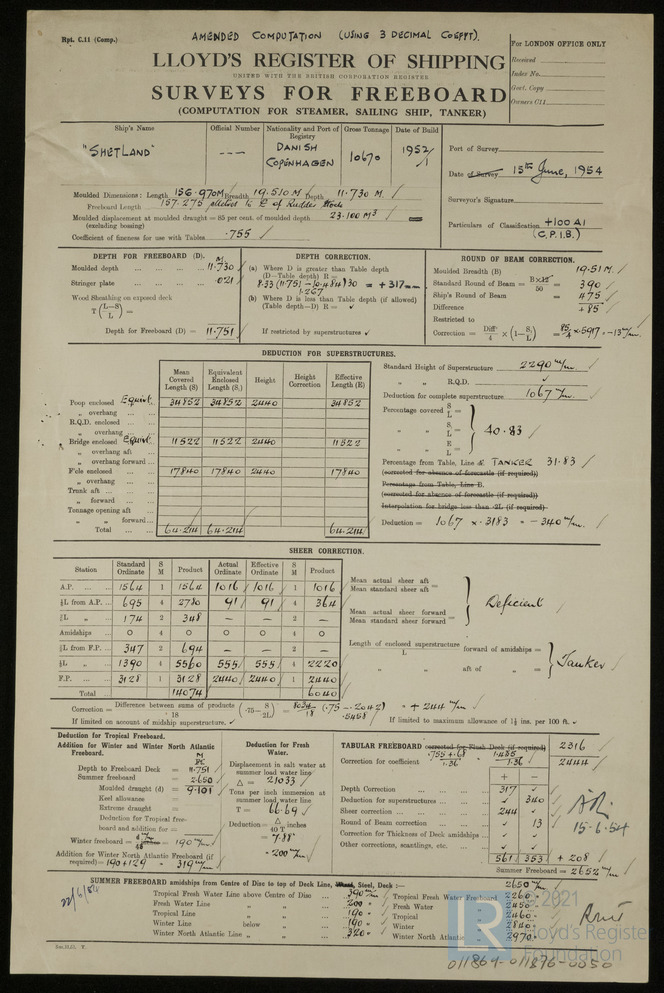 Rpt. C.11 (Comp.)
AMENDED COMPUTATION (USING 3 DECIMAL COEFFT).
For LONDON OFFICE ONLY
LLOYD'S REGISTER OF SHIPPING
Received
UNITED WITH THE BRITISH CORPORATION REGISTER
Index No.
SURVEYS FOR FREEBOARD
Govt. Copy
(COMPUTATION FOR STEAMER, SAILING SHIP, TANKER)
Owners C11
Ship's Name Official Number Nationality and Port of Registry Gross Tonnage Date of Build
"SHETLAND" --- DANISH COPENHAGEN 10670 1952/1
Port of Survey
Date of Survey 15th June, 1954
Surveyor's Signature
Particulars of Classification +100 A1
(C.P.I.B.)
Moulded Dimensions: Length 156.970M Breadth 19.510 M. Depth 11.730 M.
Freeboard Length 157.275
Moulded displacement at moulded draught = 85 per cent. of moulded depth 23.100 M3
(excluding bossing)
Coefficient of fineness for use with Tables .755
DEPTH FOR FREEBOARD (D).
Moulded depth 11.730
Stringer plate .021
Wood Sheathing on exposed deck
T (L-S/L) =
Depth for Freeboard (D) = 11.751
DEPTH CORRECTION.
(a) Where D is greater than Table depth
(D-Table depth) R =
8.33 (11.751 - 10.484) 30 = + 317
1.267
(b) Where D is less than Table depth (if allowed)
(Table depth-D) R =
If restricted by superstructures
ROUND OF BEAM CORRECTION.
Moulded Breadth (B) 19.51 M.
Standard Round of Beam = B×12/50 = 390
Ship's Round of Beam = 475
Difference = +85
Restricted to
Correction = Diff/4 × (1-S1/L) = 85/4 × .5917 = -13 m/m.
DEDUCTION FOR SUPERSTRUCTURES.
Mean Covered Length (S) Equivalent Enclosed Length (S1) Height Height Correction Effective Length (E)
Poop enclosed Equiv. 34852 34852 2440 34852
" overhang
R.Q.D. enclosed
" overhang
Bridge enclosed Equiv. 11522 11522 2440 11522
" overhang aft
" overhang forward
F'cle enclosed 17840 17840 2440 17840
" overhang
Trunk aft
" forward
Tonnage opening aft
" " forward
Total 64.214 64.214 64.214
Standard Height of Superstructure 2290 m/m
" " R.Q.D.
Deduction for complete superstructure 1067 m/m.
Percentage covered S/L =
" " S1/L = 40.83
" " E/L =
Percentage from Table, Line TANKER 31.83
(corrected for absence of forecastle (if required))
Percentage from Table, Line B.
(corrected for absence of forecastle (if required))
Interpolation for bridge less than .2L (if required)
Deduction = 1067 × .3183 = - 340 m/m.
SHEER CORRECTION.
Station Standard Ordinate S M Product Actual Ordinate Effective Ordinate S M Product
A.P. 1564 1 1564 1016 1016 1 1016
⅙L from A.P. 695 4 2780 91 91 4 364
⅓L " 174 2 348 - - 2 -
Amidships 0 4 0 0 0 4 0
⅓L from F.P. 347 2 694 - - 2 -
⅙L " 1390 4 5560 555 555 4 2220
F.P. 3128 1 3128 2440 2440 1 2440
Total 14074 6040
Mean actual sheer aft
Mean standard sheer aft =
Mean actual sheer forward
Mean standard sheer forward =
Deficient
Length of enclosed superstructure forward of amidships =
L
" " aft of " =
Tanker
Correction = Difference between sums of products/18 (.75 - S/2L) = 8034/18 (.75 - .2042) = + 244 m/m
.5458
If limited on account of midship superstructure.
If limited to maximum allowance of 1½ ins. per 100 ft.
Deduction for Tropical Freeboard.
Addition for Winter and Winter North Atlantic Freeboard.
Depth to Freeboard Deck = 11.751
Summer freeboard = 2.650
Moulded draught (d) = 9.101
Keel allowance =
Extreme draught =
Deduction for Tropical freeboard and addition for
Winter freeboard = 190 m/m
Addition for Winter North Atlantic Freeboard (if
required) = 190+129 = 319 m/m
Deduction for Fresh Water.
Displacement in salt water at
summer load water line
Δ = 21033
Tons per inch immersion at
summer load water line
T = 66.69
Deduction = Δ/40 T inches
= 7.88"
= 200 m/m
TABULAR FREEBOARD corrected for Flush Deck (if required) 2316
Correction for coefficient .755 + .68/1.36 = 1.435/1.36 2444
+ -
Depth Correction 317
Deduction for superstructures 340
Sheer correction 244
Round of Beam correction 13
Correction for Thickness of Deck amidships
Other corrections, scantlings, etc.
561 353 + 208
Summer Freeboard = 2652 m/m.
15-6-54
22/6/54
SUMMER FREEBOARD amidships from Centre of Disc to top of Deck Line, Wood, Steel, Deck :— 2650 m/m
Tropical Fresh Water Line above Centre of Disc 390 m/m Tropical Fresh Water Freeboard 2260
Fresh Water Line " " 200 Fresh Water " 2450
Tropical Line " " 190 Tropical " 2460
Winter Line below " 190 Winter " 2840
Winter North Atlantic Line " " 320 Winter North Atlantic " 2970
© 2021
LR
Lloyd's Register
Foundation
011864-011876-0050